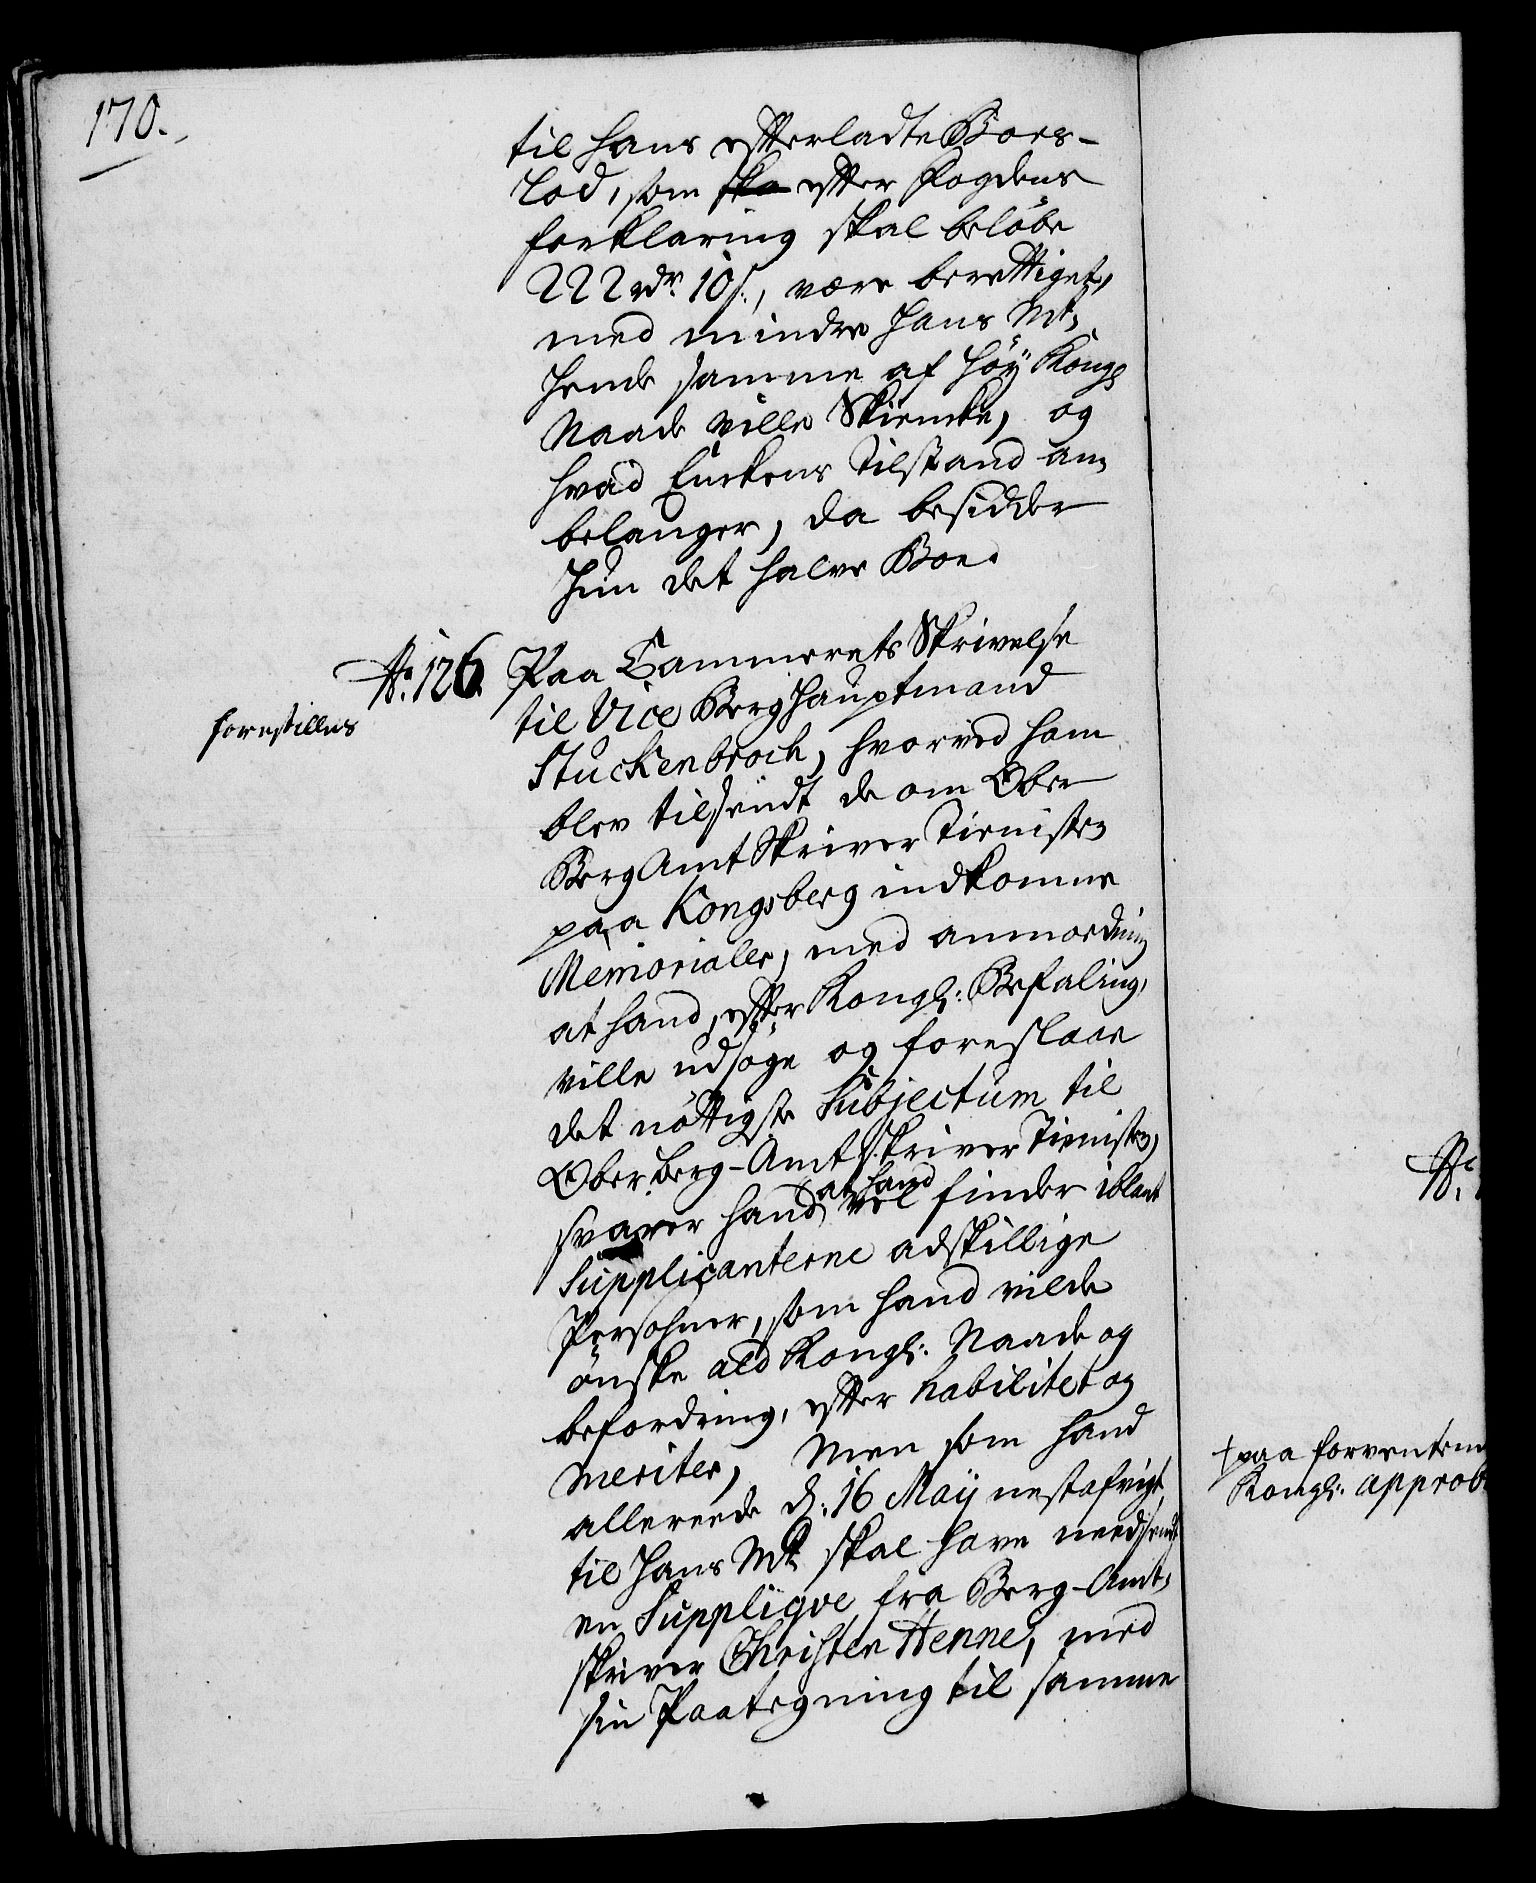 170.
til hans efterladte Boes-
lod, som ska efter Fogdens
forklaring skal beløbe
222 rdr. 10 s., være berettiget,
med mindre Hans Mt.
Hende samme af Høy Kongl.
Naade ville Skiencke, og
hvad Enckens Tilstand an-
belanger, da besidder
Hun det halve Boe.
No. 126. Paa Cammerets Skrivelse
forestilles
til Vice BergHauptmand
Stuckenbrock, hvorved ham
blev tilsendt de om Ober
BergAmtSkriver Tienisten
paa Kongsberg indkomne
Memorialer, med anmodning
at hand, efter Kongl: Befaling,
ville udsøge og foreslaae
det nøttigste Subjectum til
Ober.Berg-AmtSkriver Tienisten,
at hand
svarer hand, vel finder iblant
Supplicanterne adskillige
Persohner, som hand vilde
ønske ald Kongl: Naade og
befordring, efter habilitet og
meriter, Men som hand
allereede d: 16 Maij nestafvigt
til Hans Mt. skal have needsendt
en Suppliqve fra Berg-Amt-
skriver Christen Henne, med
sin Paategning til samme
No.
+ paa forventende
Kongl: approb